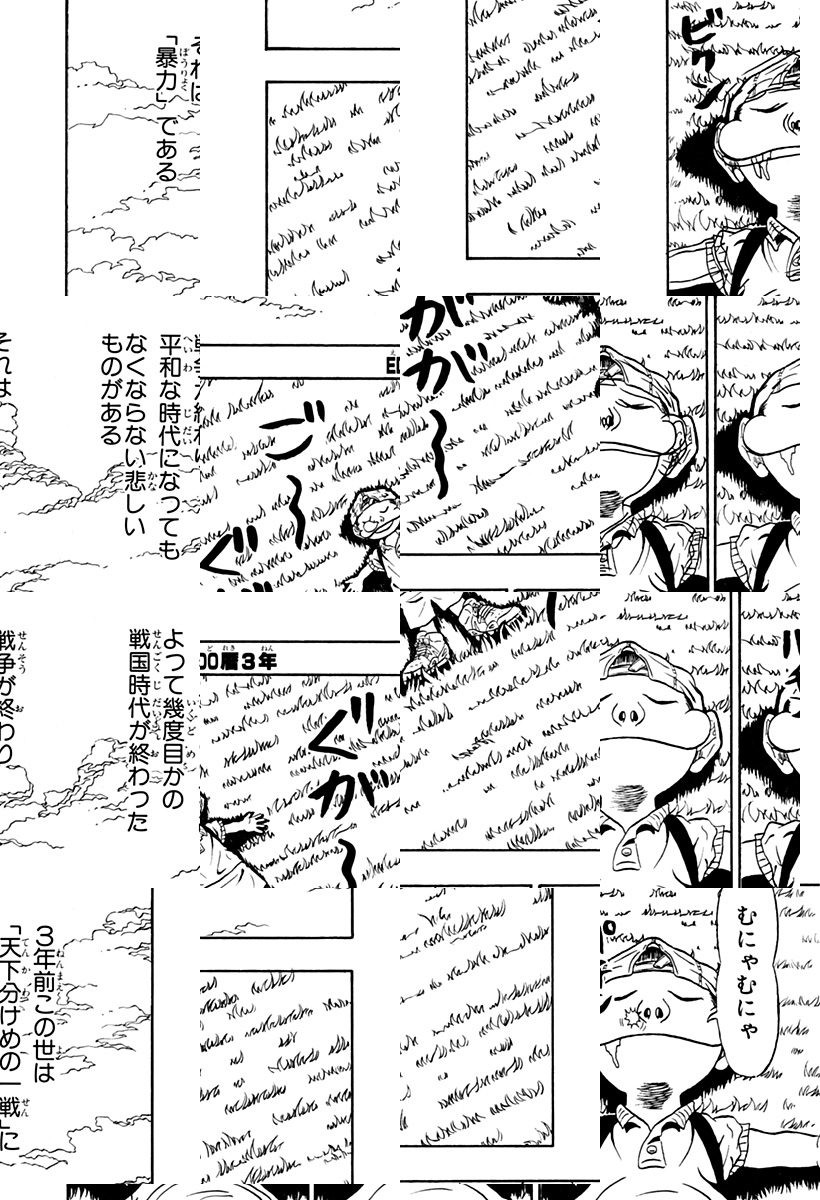 3年前この世は
「天下分けめの一戦」に
よって幾度目かの
戦国時代が終わった
戦争が終わり
平和な時代になっても
なくならない悲しい
ものがある
それは
「暴力」である
ED
OO暦3年
ぐ
が〜
が
が〜
ご〜
ぐ
むにゃむにゃ
ビクン